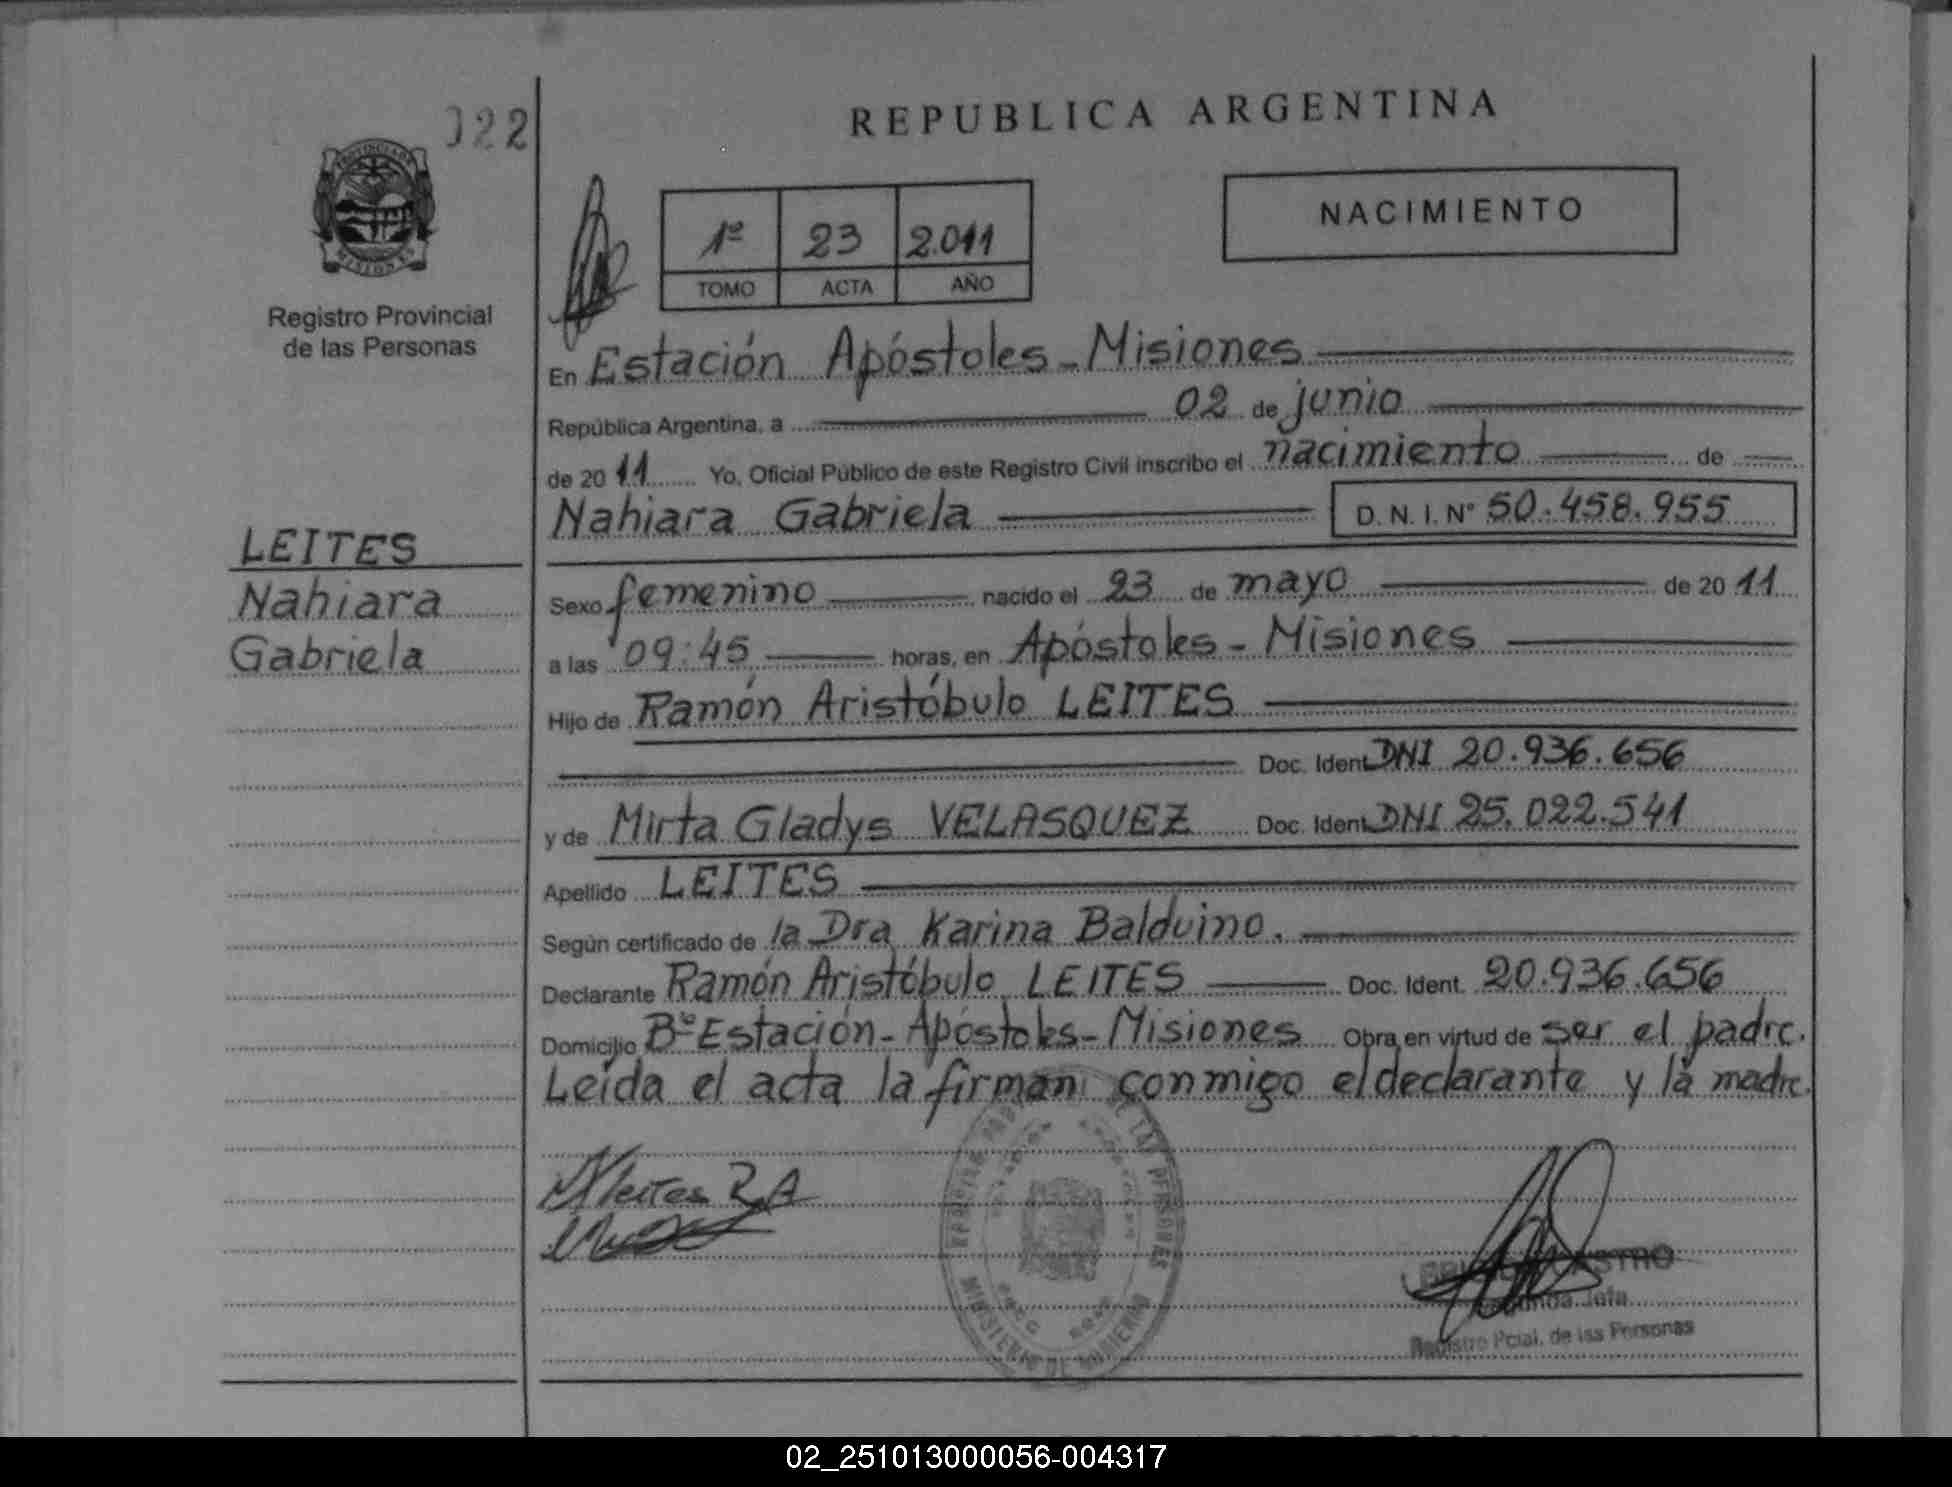 022
REPUBLICA ARGENTINA
PROVINCIA DE
MISIONES
1º 23 2.011
TOMO ACTA AÑO
NACIMIENTO
Registro Provincial
de las Personas
En Estación Apóstoles - Misiones
República Argentina, a 02 de junio
de 2011 Yo, Oficial Público de este Registro Civil inscribo el nacimiento de
Nahiara Gabriela D.N.I. Nº 50.458.955
LEITES
Nahiara
Gabriela
Sexo femenino nacido el 23 de mayo de 2011
a las 09:45 horas, en Apóstoles - Misiones
Hijo de Ramón Aristóbulo LEITES
Doc. Ident. DNI 20.936.656
y de Mirta Gladys VELASQUEZ Doc. Ident. DNI 25.022.541
Apellido LEITES
Según certificado de la Dra Karina Balduino.
Declarante Ramón Aristóbulo LEITES Doc. Ident. 20.936.656
Domicilio Bº Estación - Apóstoles - Misiones Obra en virtud de ser el padre.
Leída el acta la firman conmigo el declarante y la madre.
Leites R.A
DE LAS PERSONAS
MINISTERIO DE GOBIERNO
CASTRO
Segunda Jefa
Registro Pcial. de las Personas
02_251013000056-004317